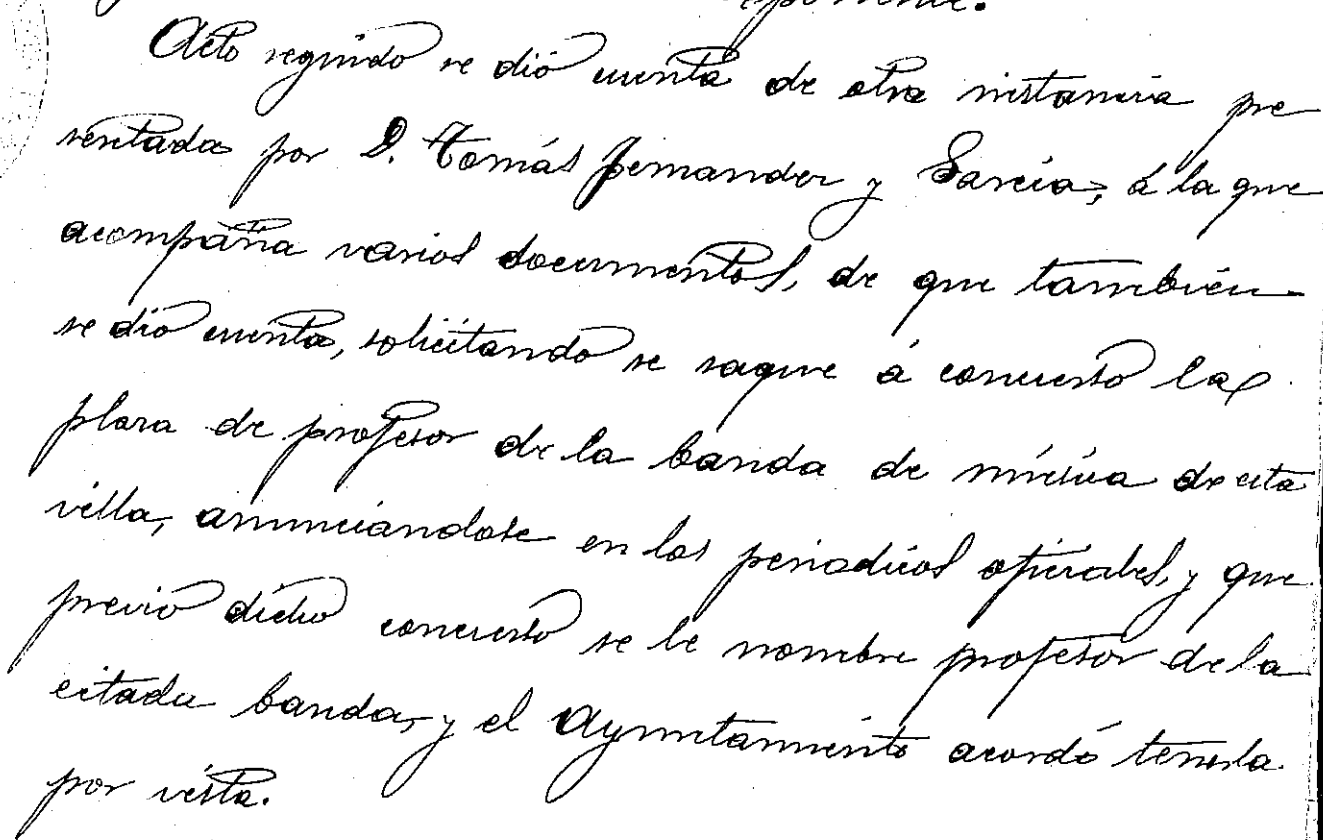 Acto seguido se dió cuenta de otra instancia pre
sentada por D. Tomás Fernandez y García, á la que
acompaña varios documentos, de que también
se dió cuenta, solicitando se saque á concurso la
plaza de profesor de la banda de música de esta
villa, anunciandose en los periodicos oficiales, y que
previo dicho concurso se le nombre profesor de la
citada banda, y el Ayuntamiento acordó tenerla
por vista.